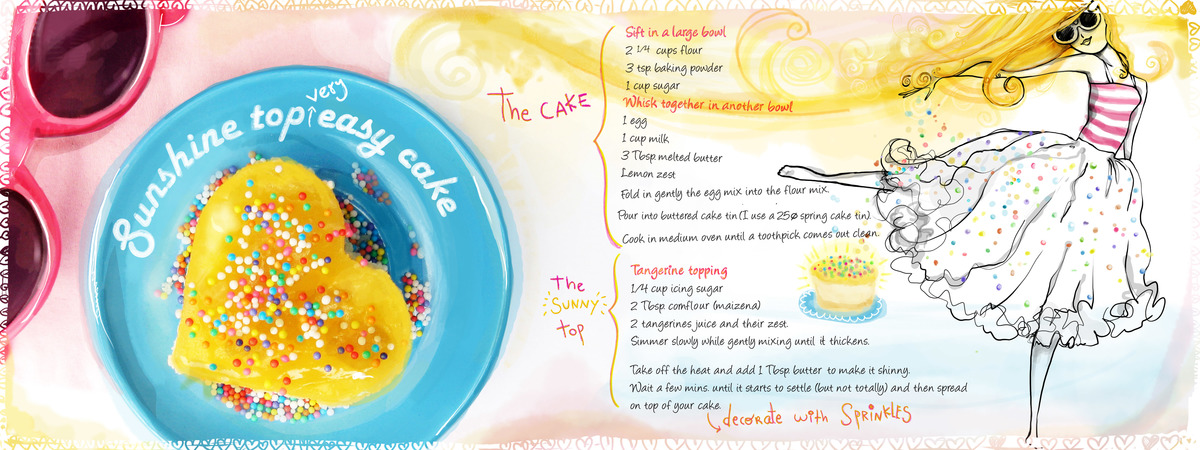 Sunshine top very easy cake
The CAKE
Sift in a large bowl
2 1/4 cups flour
3 tsp baking powder
1 cup sugar
Whisk together in another bowl
1 egg
1 cup milk
3 Tbsp melted butter
Lemon zest
Fold in gently the egg mix into the flour mix.
Pour into buttered cake tin (I use a 25ø spring cake tin)
Cook in medium oven until a toothpick comes out clean.
The
SUNNY
top
Tangerine topping
1/4 cup icing sugar
2 Tbsp cornflour (maizena)
2 tangerines juice and their zest.
Simmer slowly while gently mixing until it thickens.
Take off the heat and add 1 Tbsp butter to make it shinny.
Wait a few mins. until it starts to settle (but not totally) and then spread
on top of your cake.
decorate with SPRINKLES